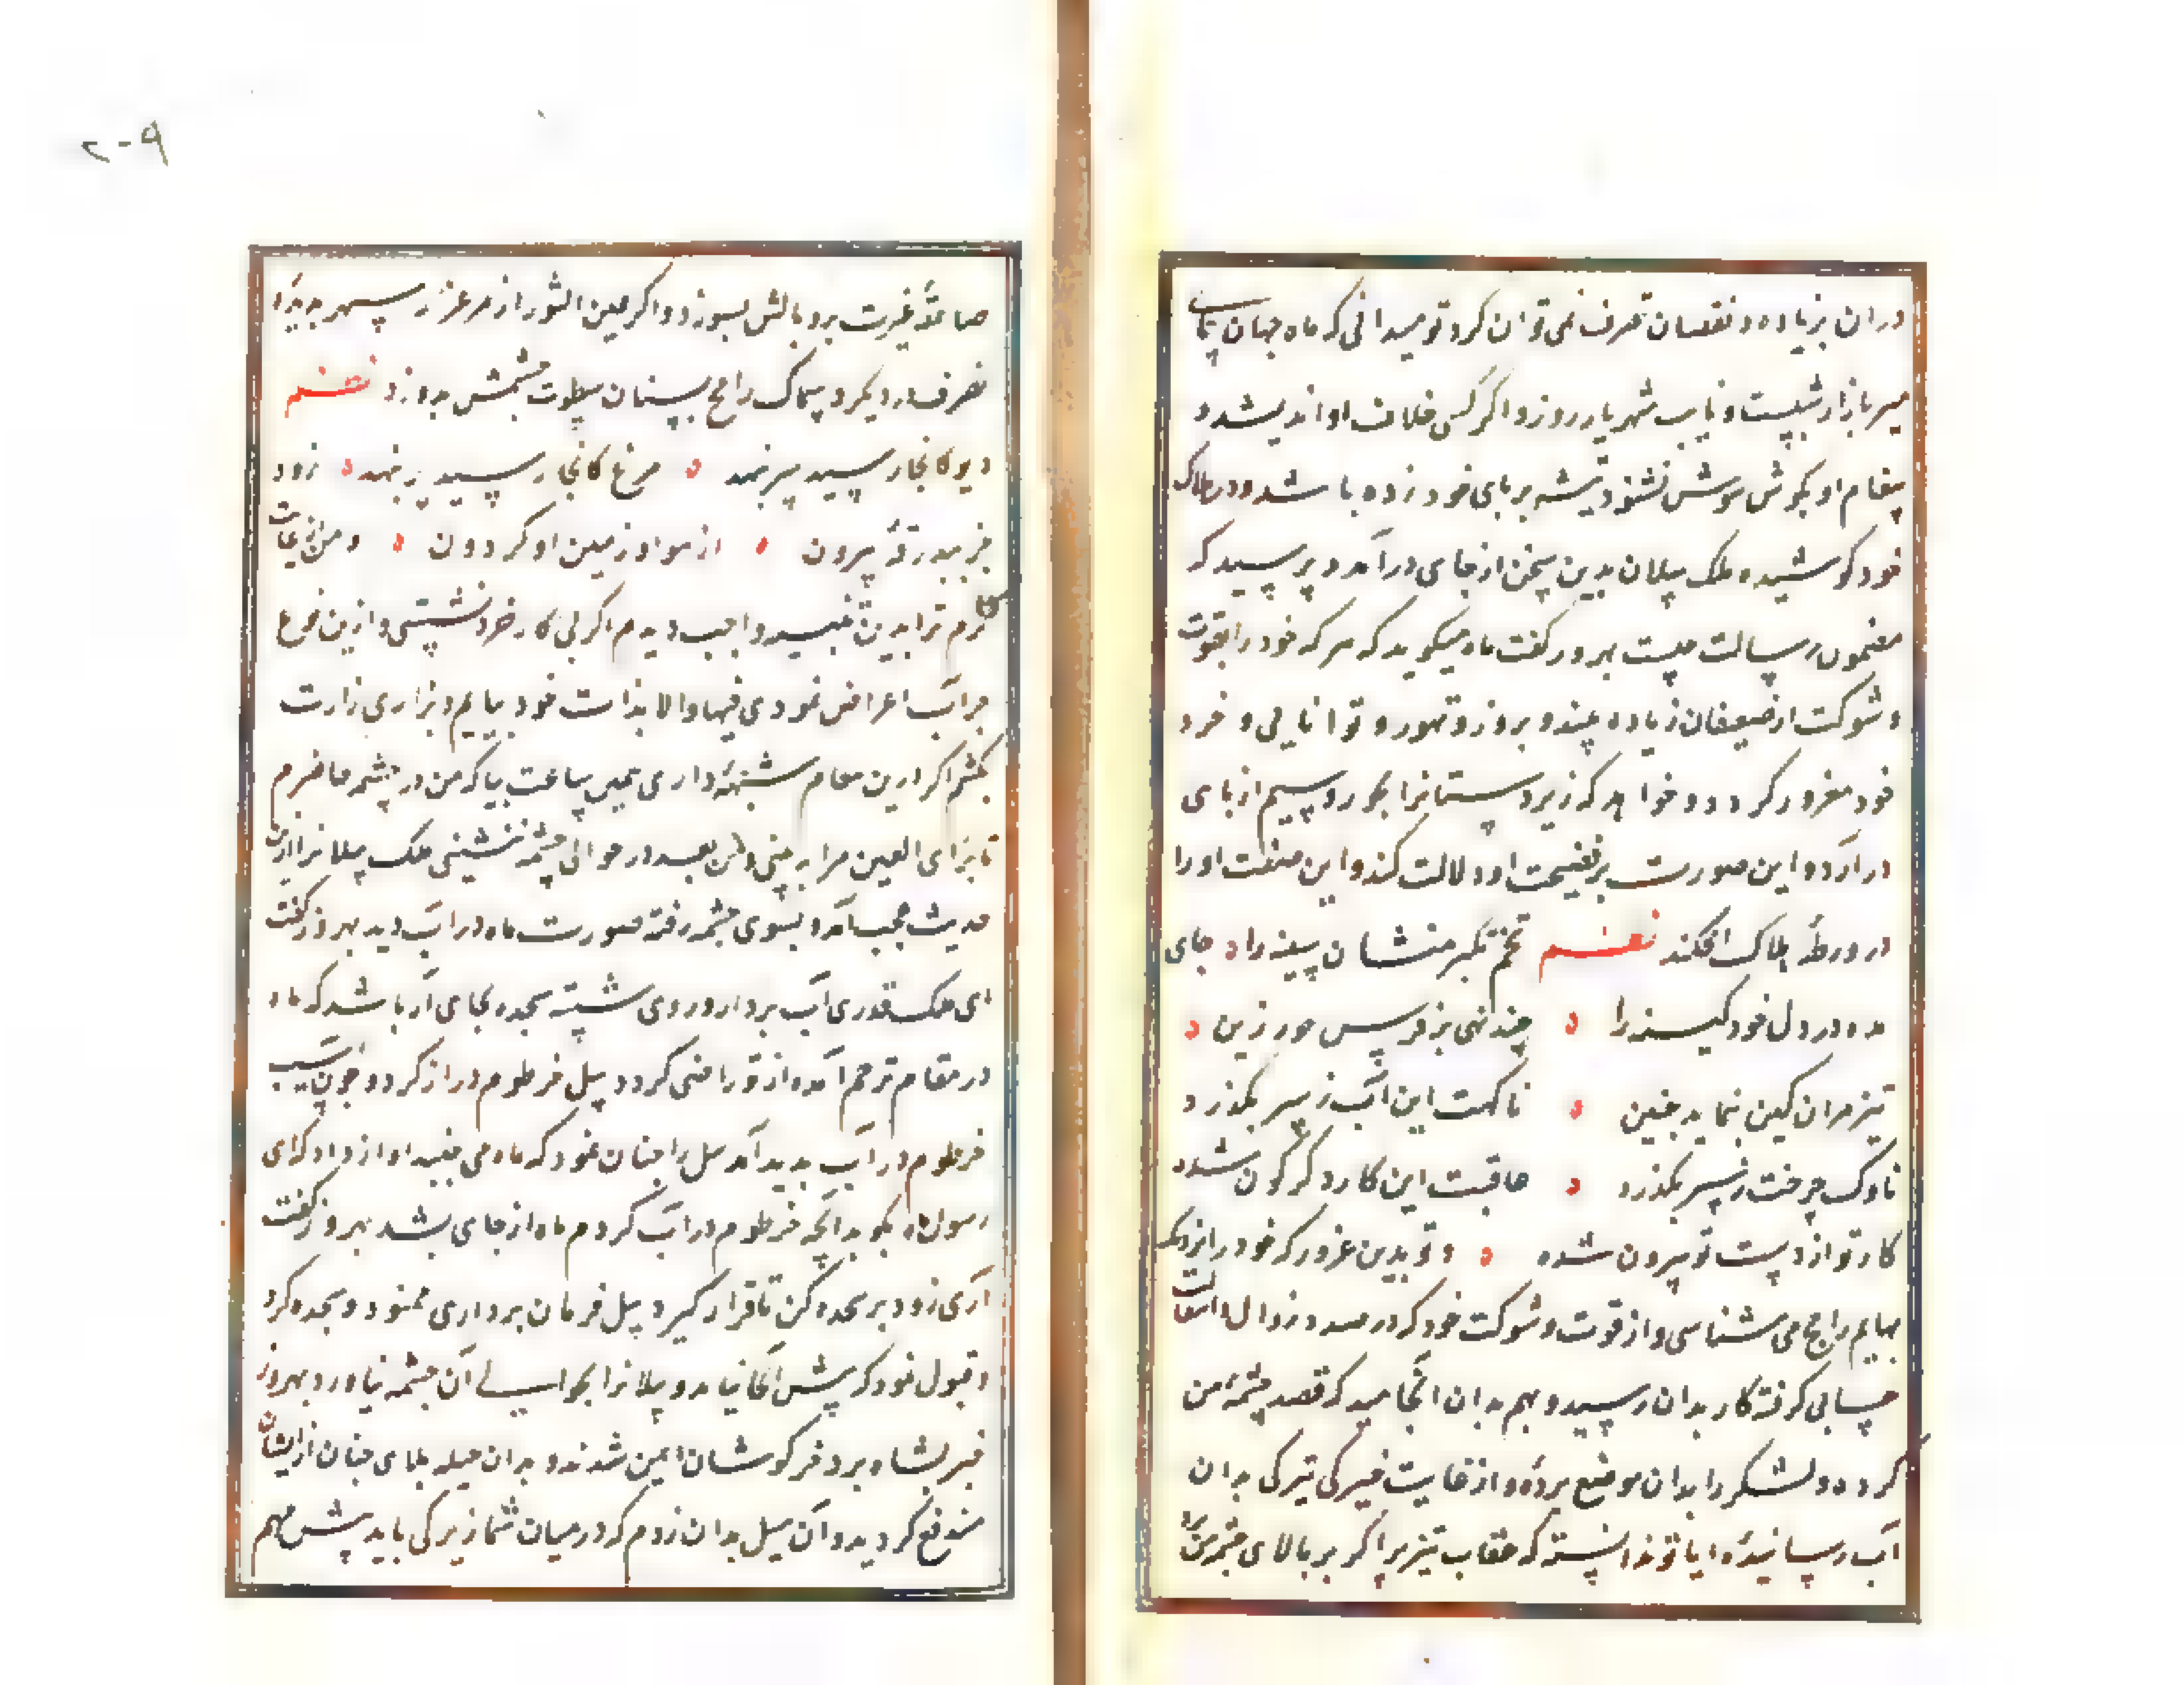 دران بزیاده و نقصان تصرف نمی توان کرد تو میدانی که ماه جهان پیمای
میر بازار شبست و نایب شهریار روز و اگر کسی خلاف او اندیشد و
پیغام او بگوش هوش نشنود تیشه بر پای خود زده باشد و در هلاک
خود کوشیده ملک پیلان بدین سخن از جای درآمد و پرسید که
مضمون رسالت چیست بهروز گفت ماه میگوید که هر که خود را بقوت
و شوکت از ضعیفان زیاده بیند و بروز و تهور و توانایی و خرد
خود مغرور گردد و خواهد که زیردستانرا بجور و سیم از پای
در آرد و این صورت بر فضیحت او دلالت کند و این صفت او را
در ورطهٔ هلاک افکند نظم تخم تکبر منشان سینه را جای
مده در دل خود کینه را چند نهی بر فرس جور زین
تیز مران کین ننماید چنین ناگهت این آب ز سر بگذرد
ناوک چرخت ز سپر بگذرد عاقبت این کار دگرگون شده
کار تو از دست تو بیرون شده و تو بدین غرور که خود را بر دیگر
بهایم راجح می شناسی و از قوت و شوکت خود که در صدد زوال و انتقالست
حسابی گرفته کار بدان رسید و مهم بدان انجامید که قصد چشمهٔ من
کرده و لشکر را بدان موضع برده و از غایت خیرگی تیرگی بدان
آب رسانیدهٔ ایا تو ندانسته که عقاب تیزپر اگر بر بالای چشمهٔ من
صاعقهٔ غیرت پر و بالش بسوزد و اگر عین الثور از مرغزار سپهر بدیدهٔ
تصرف در و نگرد سماک رامح بسنان سطوت چشمش بدوزد نظم
دیو کانجا رسید سر بنهد مرغ کانجا رسید پر بنهد نرود
جز ببدرقهٔ بیرون از هوا و زمین او گردون و من از غایت
کرم ترا بدین تنبیه واجب دیدم اگر پی کار خود نشستی و ازین نوع
جرأت اعراض نمودی فبها والا بذات خود بیایم و بزاری زارت
بکشم اگر درین مقام شبههٔ داری همین ساعت بیا که من در چشمه حاضرم
تا برای العین مرا به بینی و من بعد در حوالی چشمه ننشینی ملک پیلانرا ازین
حدیث عجب آمد و بسوی چشمه رفته صورت ماه در آب دید بهروز گفت
ای ملک قدری آب بردار و روی شسته سجده بجای آر باشد که ماه
در مقام ترحم آمده از تو راضی گردد پیل خرطوم دراز کرد و چون آسیب
خرطوم در آب پدید آمد پیل را چنان نمود که ماه می جنبد آواز داد که ای
رسول ماه بگو بدانچه خرطوم در آب کردم ماه از جای بشد بهروز گفت
آری زود بر سجده کن تا قرار گیرد پیل فرمان برداری نمود و سجده کرد
و قبول نمود که پیش آنجا نیاید و پیلانرا بحوالی آن چشمه نیاورد بهروز
خبر بشاه برد خرگوشان ایمن شدند و بدان حیله بلای چنان از ایشان
مندفع گردید و آن مثل بدان زدم که در میان شما زیرکی باید پیش مهم